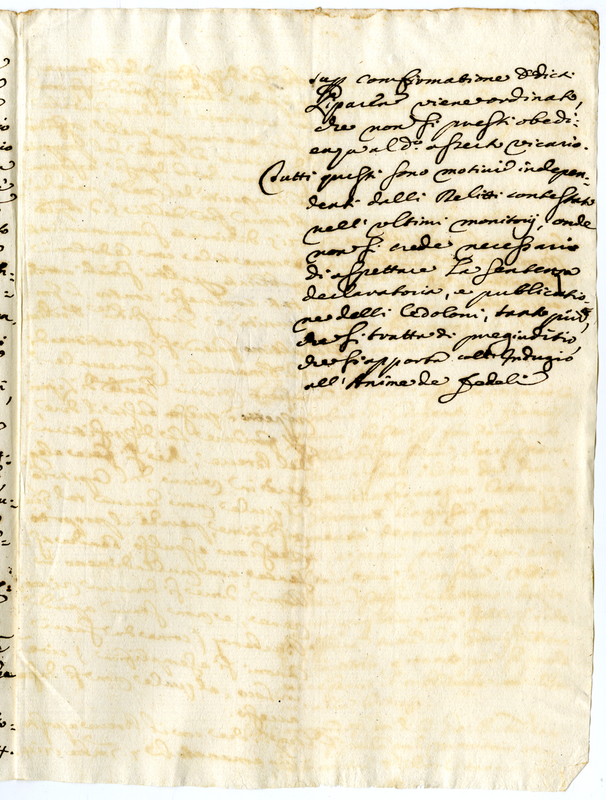 confirmatione d. dicti
viene ordinato,
che non si presti obedi-
enza al d.o asserto vicario.
Tutti questi sono motivi indepen-
denti dalli Relitti contestati
nelli ultimi monitorij, onde
non si crede necessario
di aspettare la sentenza
declaratoria, e publicatio-
ne delli Cedoloni, tanto più,
che si tratta di pregiuditio,
che si apporta coll'Indugio
all'Anime de fedeli